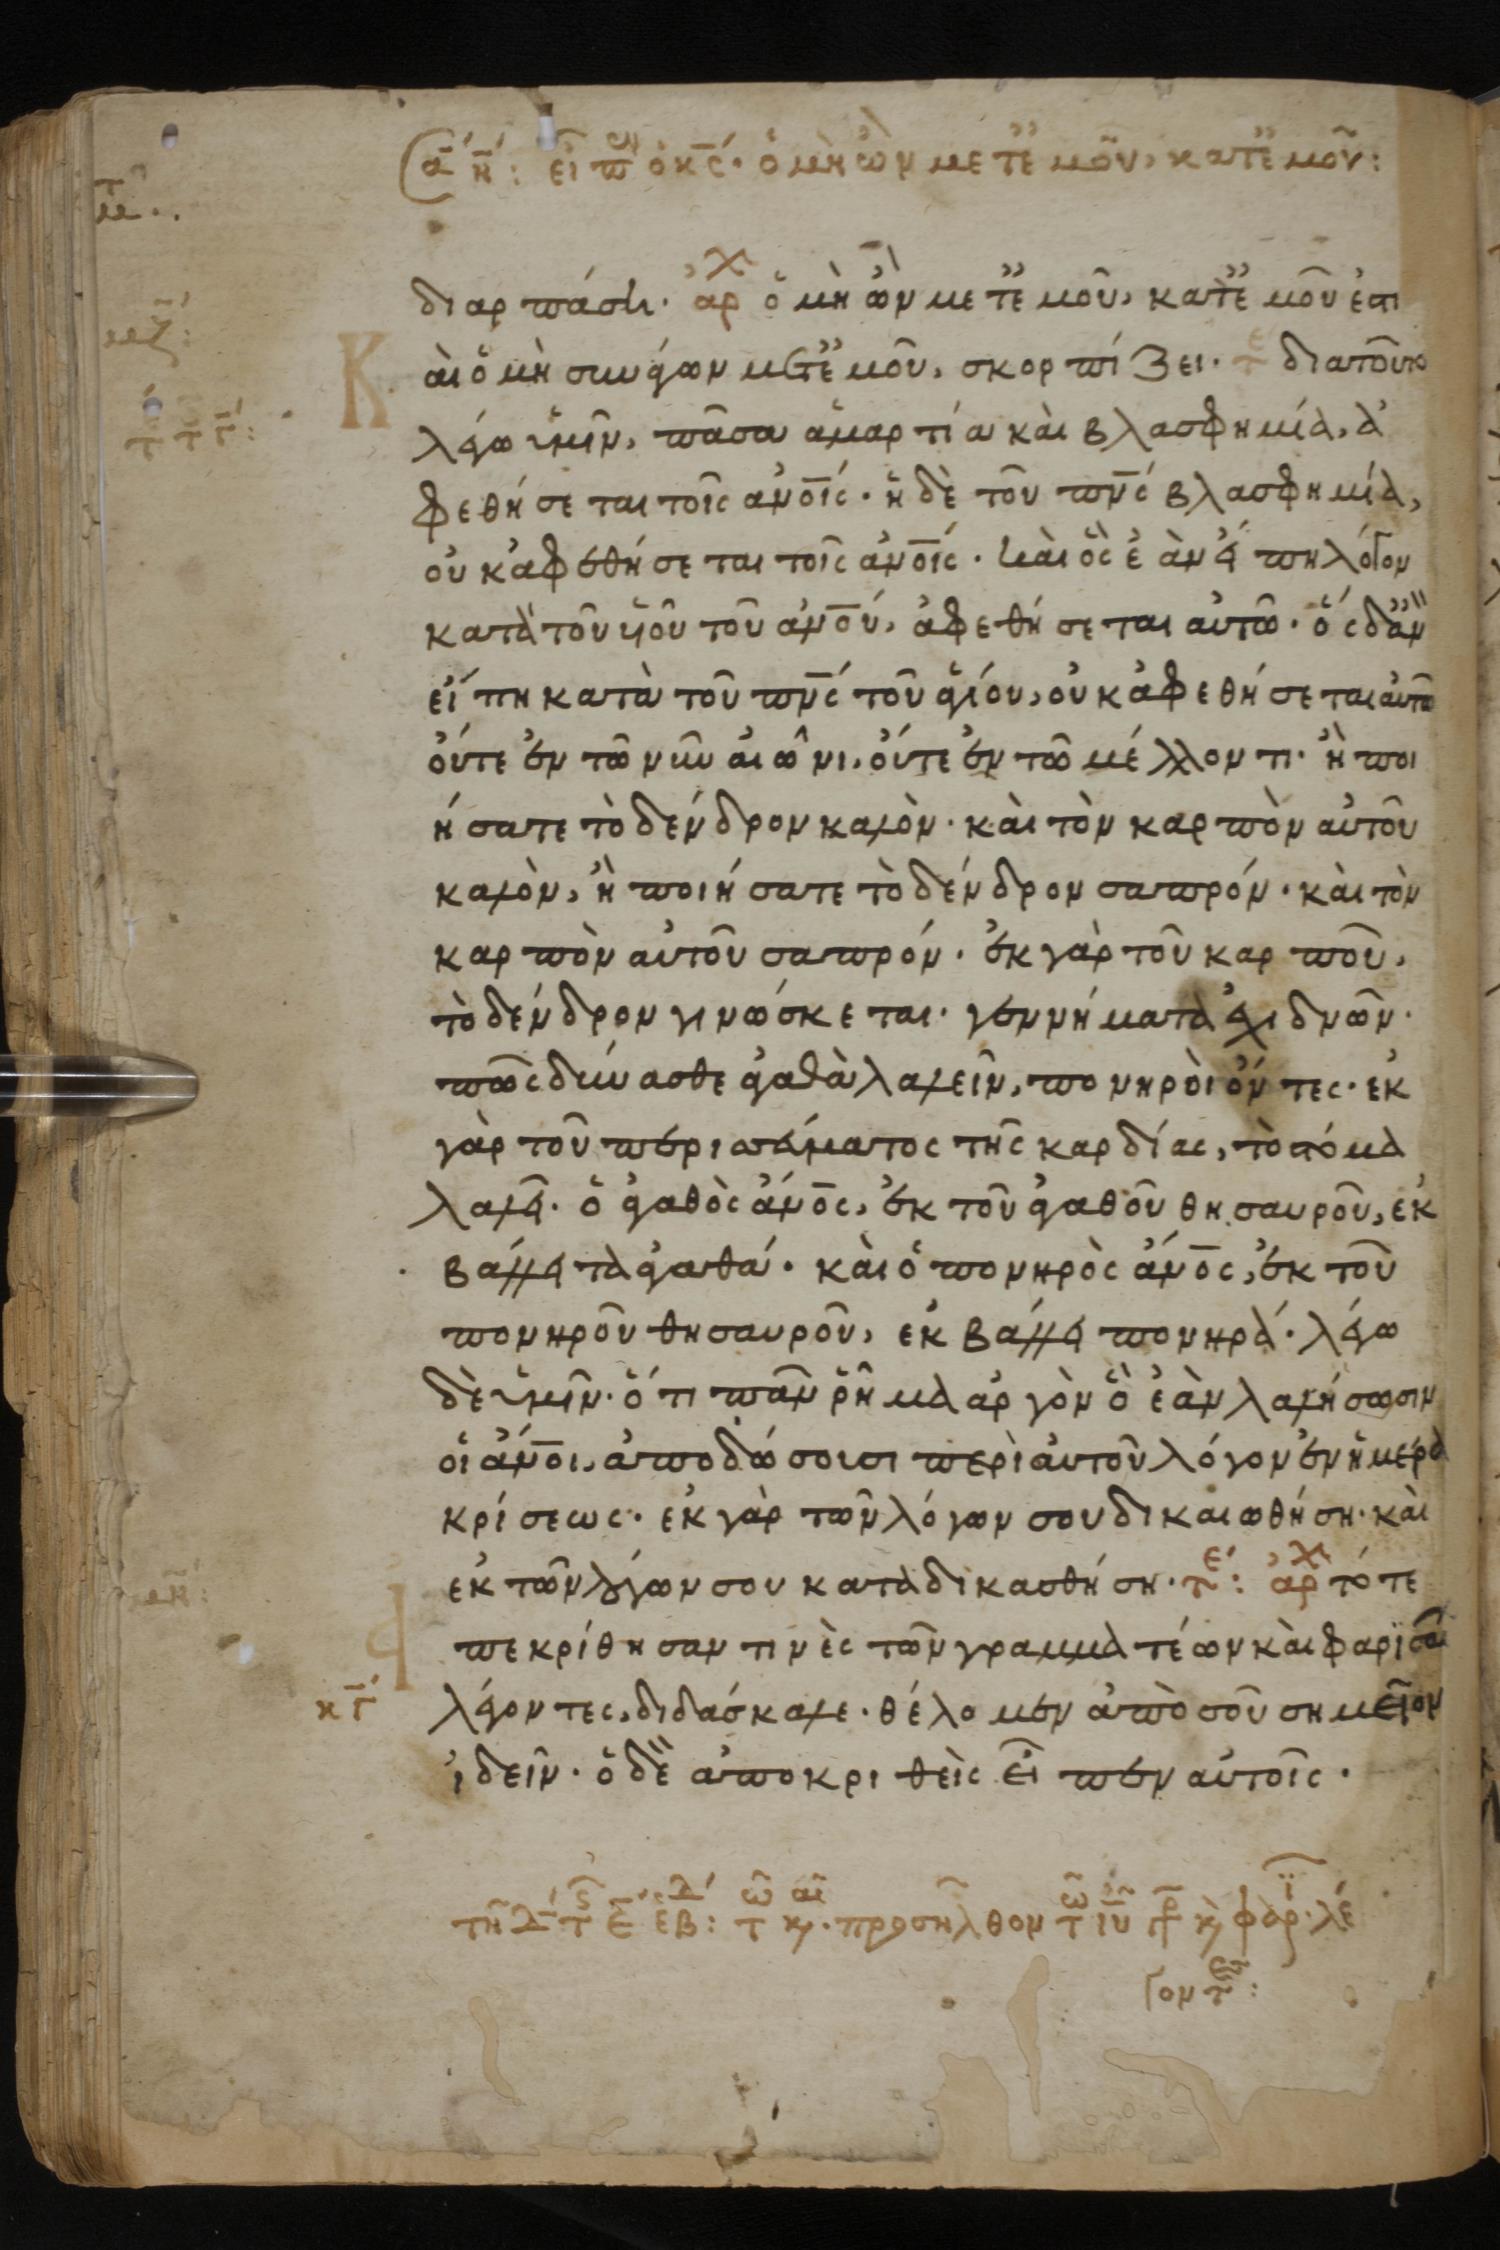 ᾱ η̄: εἶπ ὁ κ̅ς̅. ὁ μὴ ὢν μετ ἐμοῦ, κατ ἐμοῦ:
διαρπάσει. ἀρχ ὁ μὴ ὢν μετ ἐμοῦ, κατ ἐμοῦ ἐστι
Καὶ ὁ μὴ συνάγων μετ ἐμοῦ, σκορπίζει. τε διατοῦτο
λέγω ὑμῖν, πᾶσα ἁμαρτία καὶ βλασφημία, ἀ
φεθήσεται τοῖς α̅ν̅ο̅ι̅ς̅. ἡ δὲ τοῦ π̅ν̅ς̅ βλασφημία,
οὐκ ἀφεθήσεται τοῖς α̅ν̅ο̅ι̅ς̅. καὶ ὃς ἐὰν εἴπη λόγον
κατὰ τοῦ υἱοῦ τοῦ α̅ν̅ο̅υ̅, ἀφεθήσεται αὐτῶ. ὃς δ ἂν
εἴπη κατὰ τοῦ π̅ν̅ς̅ τοῦ ἁγίου, οὐκ ἀφεθήσεται αὐτῶ
οὔτε ἐν τῶ νῦν αἰῶνι, οὔτε ἐν τῶ μέλλοντι. ἢ ποι
ήσατε τὸ δένδρον καλὸν. καὶ τὸν καρπὸν αὐτοῦ
καλὸν, ἢ ποιήσατε τὸ δένδρον σαπρόν. καὶ τὸν
καρπὸν αὐτοῦ σαπρόν. ἐκ γὰρ τοῦ καρποῦ,
τὸ δένδρον γινώσκεται. γεννήματα ἐχιδνῶν.
πῶς δύνασθε ἀγαθὰ λαλεῖν, πονηροὶ ὄντες. ἐκ
γὰρ τοῦ περισσεύματος τῆς καρδίας, τὸ στόμα
λαλεῖ. ὁ ἀγαθὸς α̅ν̅ο̅ς̅, ἐκ τοῦ ἀγαθοῦ θησαυροῦ, ἐκ
βάλλει τὰ ἀγαθά. καὶ ὁ πονηρὸς α̅ν̅ο̅ς̅, ἐκ τοῦ
πονηροῦ θησαυροῦ, ἐκβάλλει πονηρά. λέγω
δὲ ὑμῖν. ὅτι πᾶν ῥῆμα ἀργὸν ὃ ἐὰν λαλήσωσιν
οἱ α̅ν̅ο̅ι̅, ἀποδώσουσι περὶ αὐτοῦ λόγον ἐν ἡμέρα
κρίσεως. ἐκ γὰρ τῶν λόγων σου δικαιωθήση. καὶ
ἐκ τῶν λόγων σου καταδικασθήση. τε: ἀρχ τότε
ἀπεκρίθησαν τινὲς τῶν γραμματέων καὶ φαρισαῖ
κ̅γ̅ λέγοντες, διδάσκαλε. θέλομεν ἀπὸ σοῦ σημεῖον
ἰδεῖν. ὁ δὲ ἀποκριθεὶς εἶπεν αὐτοῖς.
τῆ δ τ ε ἑβδ: τω και. προσῆλθον τω ι̅υ̅ γρ κ φαρ. λέ
γοντες: